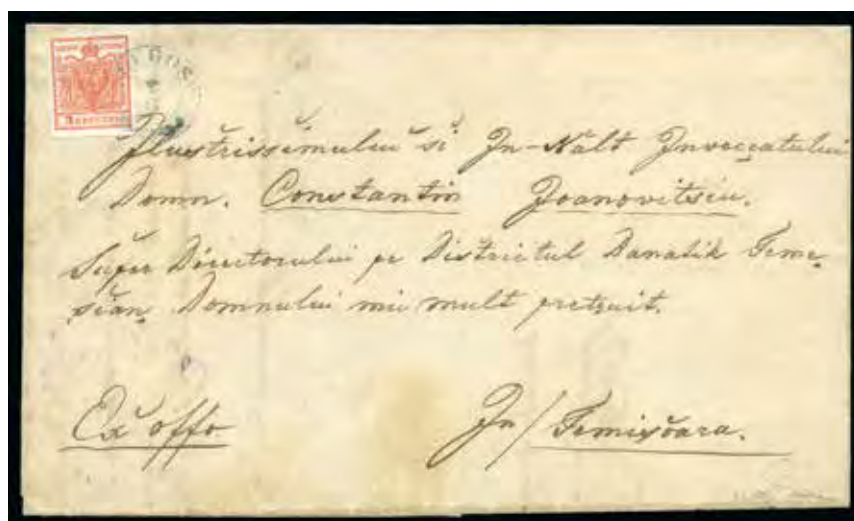 Ilustrissimului si In-Nalt Inveccatului
Domn. Constantin Joanovitsiu.
Super Directorului pe Districtul Banatik Teme-
sian. Domnului miu mult pretzuit.
Ex offo In / Temisoara.